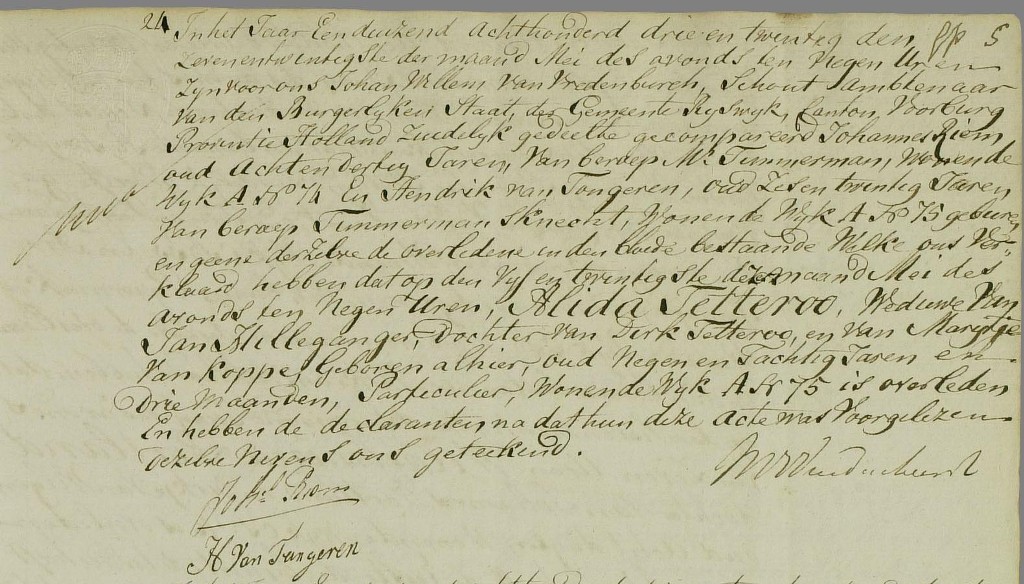 24 In het Jaar Eenduizend Achthonderd drie en twintig den
Zevenentwintigste der maand Mei des avonds ten Negen Uren
Zyn voor ons Johan Willem Van Vredenburch, Schout Ambtenaar
Van den Burgerlyken Staat, der Gemeente Ryswyk, Canton, Voorburg
Provintie Holland Zuidelyk gedeelte gecompareerd Johannes Riem,
oud Acht en Dertig Jaren, Van beroep Mr Timmerman, Wonende
Wyk A No 74 En Hendrik van Tongeren, oud Zes en twintig Jaren
Van beroep Timmermansknecht, Wonende Wyk A No 75 geburen
en geene derzelve de overledene in den bloede bestaande Welke ons Ver-
klaard hebben dat op den Vyf en twintigste dezer maand Mei des
avonds ten Negen Uren, Alida Tetteroo, Weduwe Van
Jan Hilleganger, Dochter van Dirk Tetteroo, en van Marytje
Van Koppe, Geboren alhier, oud Negen en Tachtig Jaren en
Drie Maanden, Particulier, Wonende Wyk A No 75 is overleden
En hebben de declaranten na dat hun deze Acte was Voorgelezen
dezelve Nevens ons getekend.
H Van Tungeren